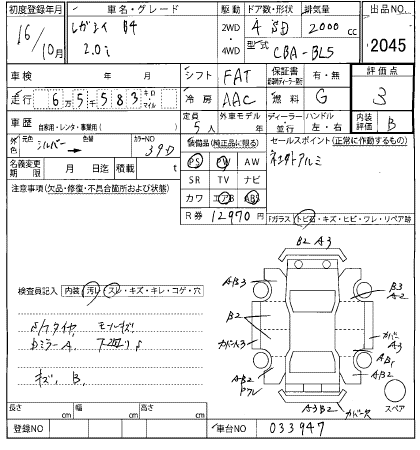 初度登録年月 車名・グレード 駆動 ドア数・形状 排気量 出品NO.
16年 10月 レガシイ B4 2.0i 2WD 4WD 4 SD 2000cc
型式 CBA-BL5 2045
車検 年 月 シフト FAT 保証書 有・無 評価点
走行 6万5千583 キロ マイル 冷房 AAC 燃料 G 3
車歴 自家用・レンタ・事業用( ) 定員 5人 外車モデル 年 ディーラー 並行 ハンドル 左・右 内装評価 B
外色 元色 シルバー 色替 カラーNO 39D 装備品(純正品に限る) セールスポイント(正常に作動するもの)
名義変更期限 月 日迄 積載 t PS PW AW 社外アルミ
注意事項(欠品・修復・不具合箇所および状態) SR TV ナビ
カワ エアB ABS
R券 12970円 Fガラス・トビ石・キズ・ヒビ・ワレ・リペア跡
B2 A3
検査員記入 内装・汚レ・スレ・キズ・キレ・コゲ・穴
AB3 B3 A2
タイヤ
B2
ミラーA カバーA3 カバー A3
AB1
キズ、B AB2 AB2
A3B2 カバー欠 スペア
長さ cm 幅 cm 高さ cm
登録NO 車台NO 033947